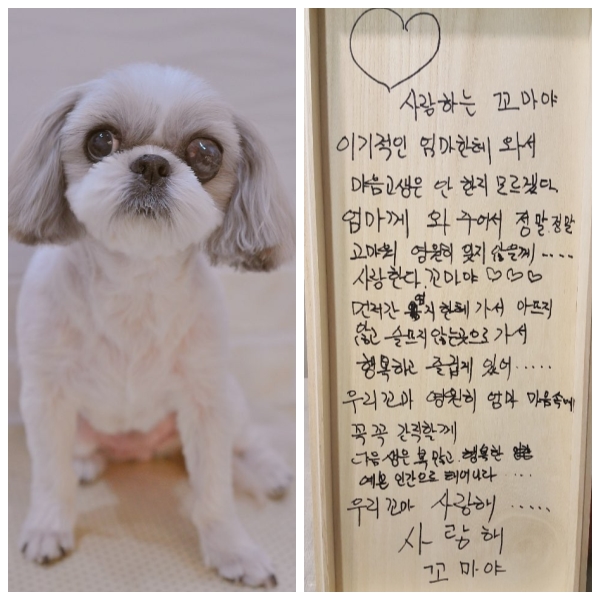 사랑하는 꼬마야
이기적인 엄마한테 와서
마음고생은 안 한지 모르겠다.
엄마께 와 주어서 정말 정말
고마워 영원히 잊지 않을께 ....
사랑한다 꼬마야 ♡♡♡
먼저간 한테 가서 아프지
않고 슬프지 않는곳으로 가서
행복하고 즐겁게 있어.....
우리꼬마 영원히 엄마 마음속에
꼭꼭 간직할께
다음생은 복 많고 행복한
예쁜 인간으로 태어나라 ....
우리꼬마 사랑해 .....
사랑해
꼬마야